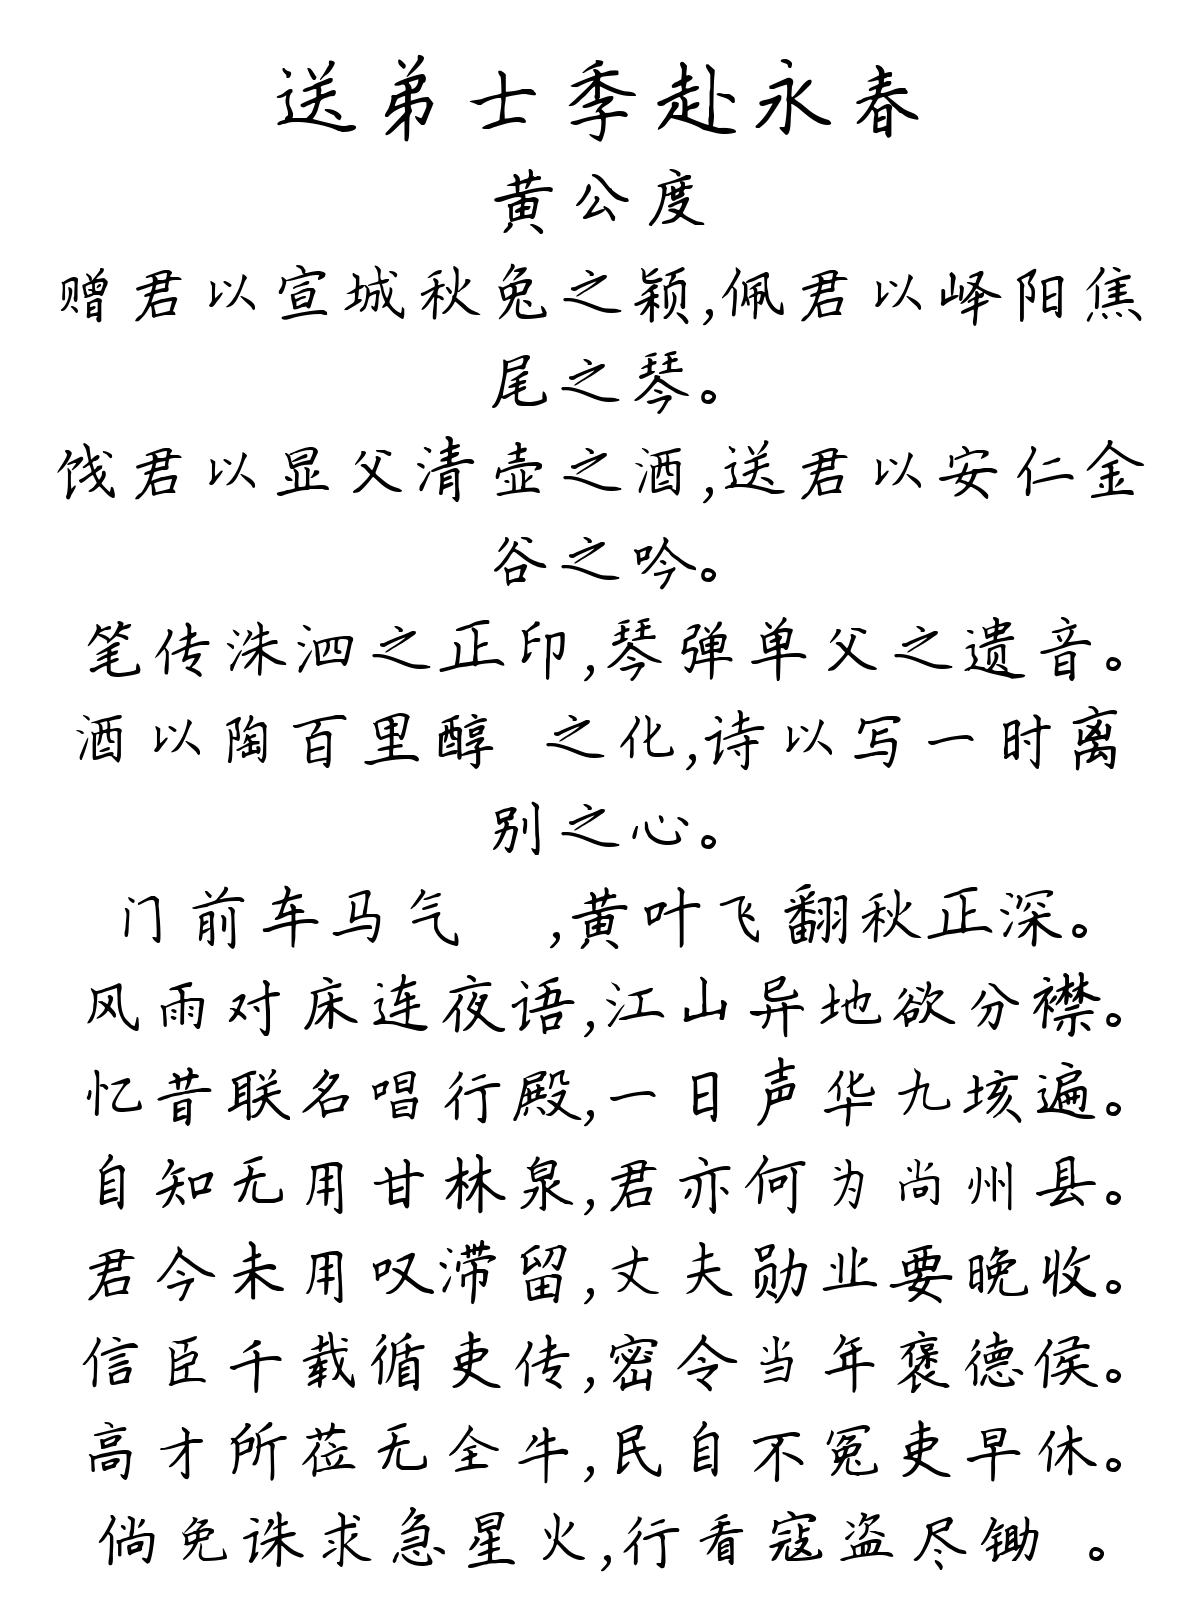 送弟士季赴永春
黄公度
赠君以宣城秋兔之颖,佩君以峄阳焦
尾之琴。
饯君以显父清壶之酒,送君以安仁金
谷之吟。
笔传洙泗之正印,琴弹单父之遗音。
酒以陶百里醇 之化,诗以写一时离
别之心。
门前车马气 ,黄叶飞翻秋正深。
风雨对床连夜语,江山异地欲分襟。
忆昔联名唱行殿,一日声华九垓遍。
自知无用甘林泉,君亦何为尚州县。
君今未用叹滞留,丈夫勋业要晚收。
信臣千载循吏传,密令当年褒德侯。
高才所莅无全牛,民自不冤吏早休。
倘免诛求急星火,行看寇盗尽锄 。